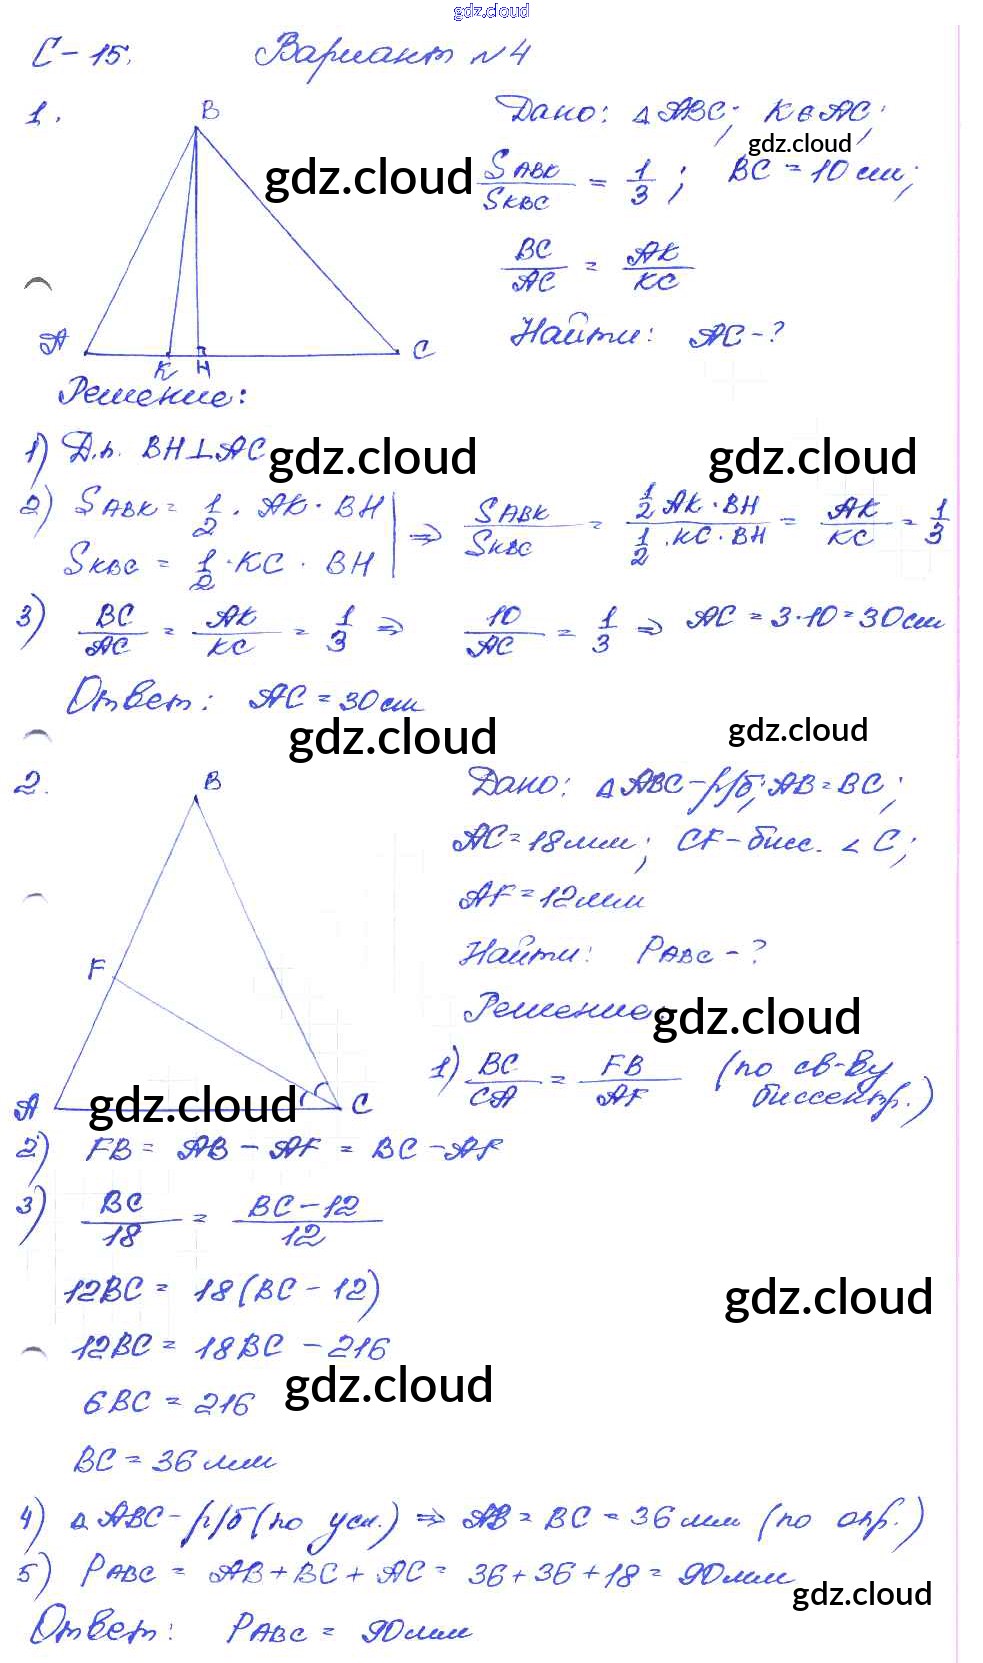 gdz.cloud
С-15. Вариант №4
1.
B
A
K
H
C
Дано: △ABC; K∈AC;
gdz.cloud
gdz.cloud
S_ABK/S_KBC = 1/3; BC = 10 см;
BC/AC = AK/KC
Найти: AC - ?
Решение:
1) Д.п. BH⊥AC
gdz.cloud
gdz.cloud
2) S_ABK = 1/2 · AK · BH
S_KBC = 1/2 · KC · BH
⇒ S_ABK/S_KBC = (1/2 AK · BH)/(1/2 · KC · BH) = AK/KC = 1/3
3) BC/AC = AK/KC = 1/3 ⇒ 10/AC = 1/3 ⇒ AC = 3·10 = 30см
Ответ: AC = 30см
gdz.cloud
gdz.cloud
2.
B
F
A
C
Дано: △ABC - р/б; AB = BC;
AC = 18мм; CF - бисс. ∠C;
AF = 12мм
Найти: P_ABC - ?
Решение:
gdz.cloud
1) BC/CA = FB/AF (по св-ву биссектр.)
gdz.cloud
2) FB = AB - AF = BC - AF
3) BC/18 = BC-12/12
12BC = 18(BC - 12)
gdz.cloud
12BC = 18BC - 216
6BC = 216
gdz.cloud
BC = 36 мм
4) △ABC - р/б (по усл.) ⇒ AB = BC = 36 мм (по опр.)
5) P_ABC = AB + BC + AC = 36 + 36 + 18 = 90мм
gdz.cloud
Ответ: P_ABC = 90мм